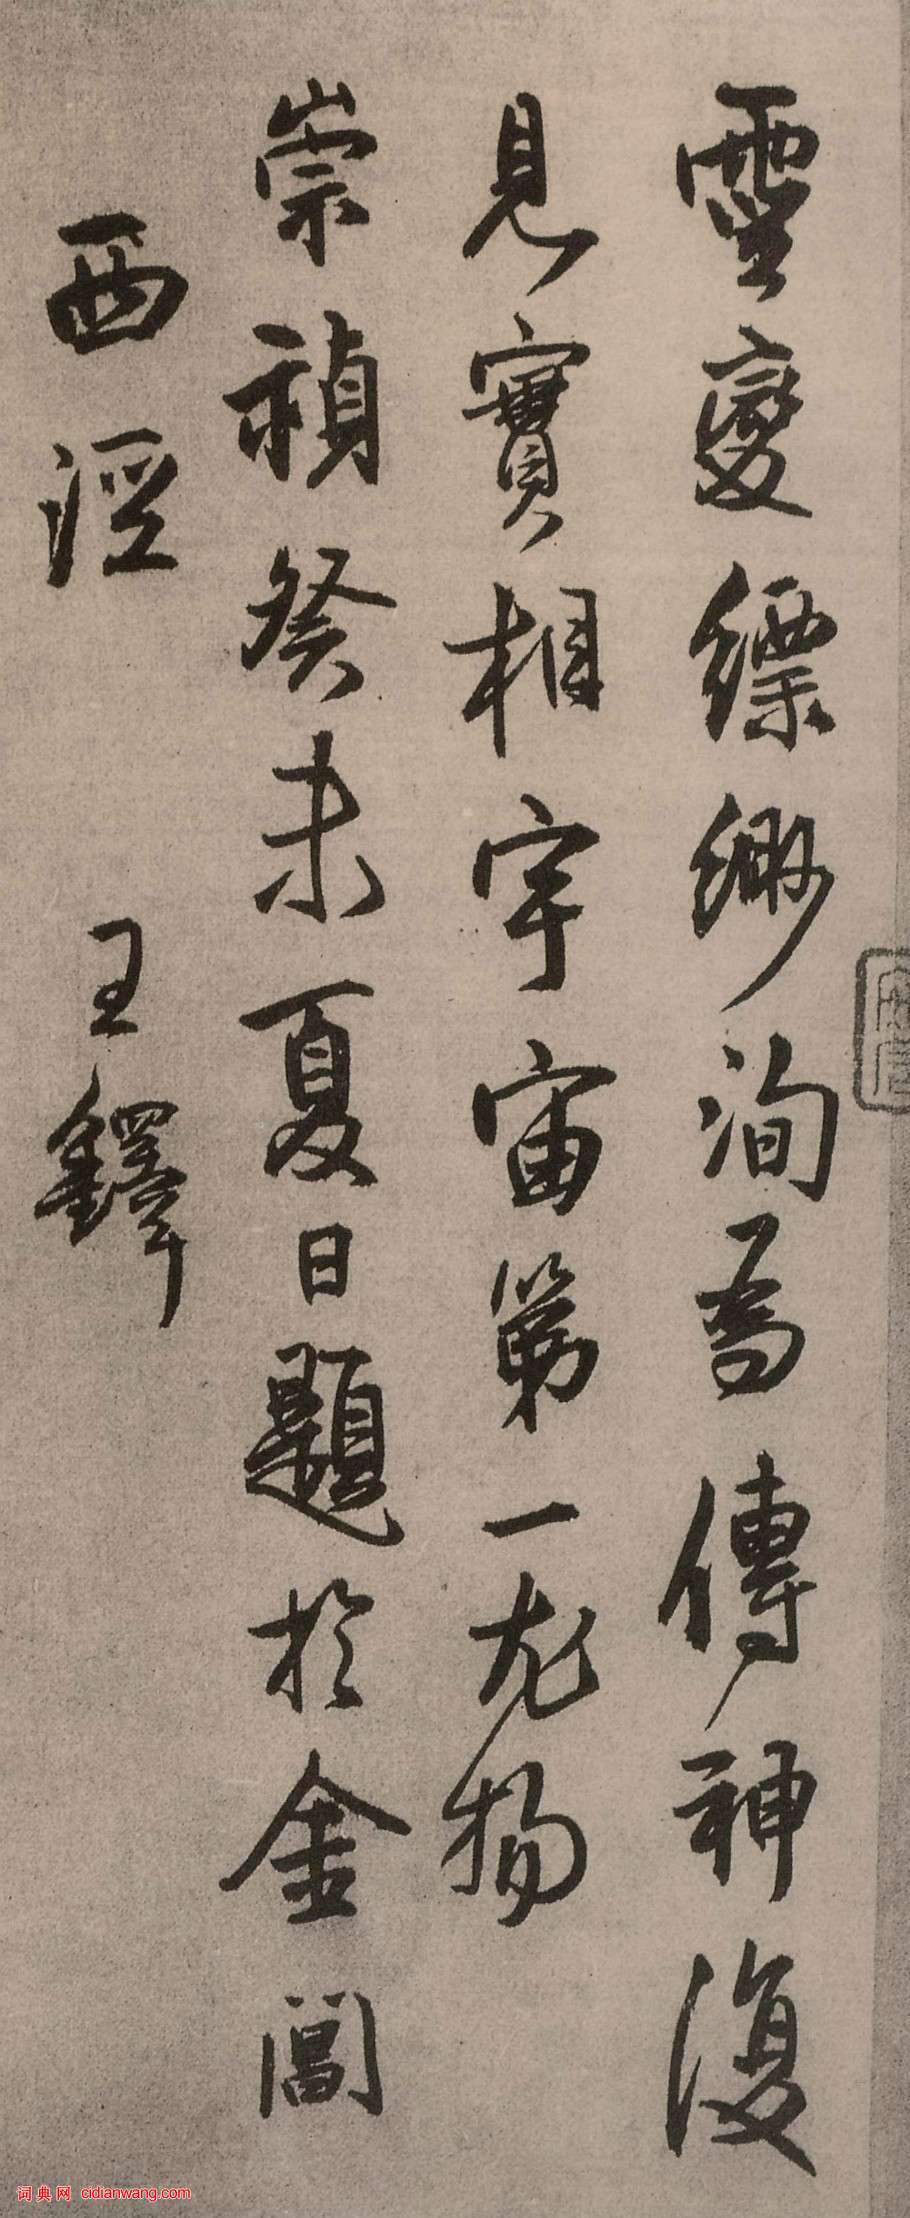 靈變縹緲洵爲傳神復
見實相宇宙第一尤物
崇禎癸未夏日題於金閶
西涇
王鐸
词典网 cidianwang.com